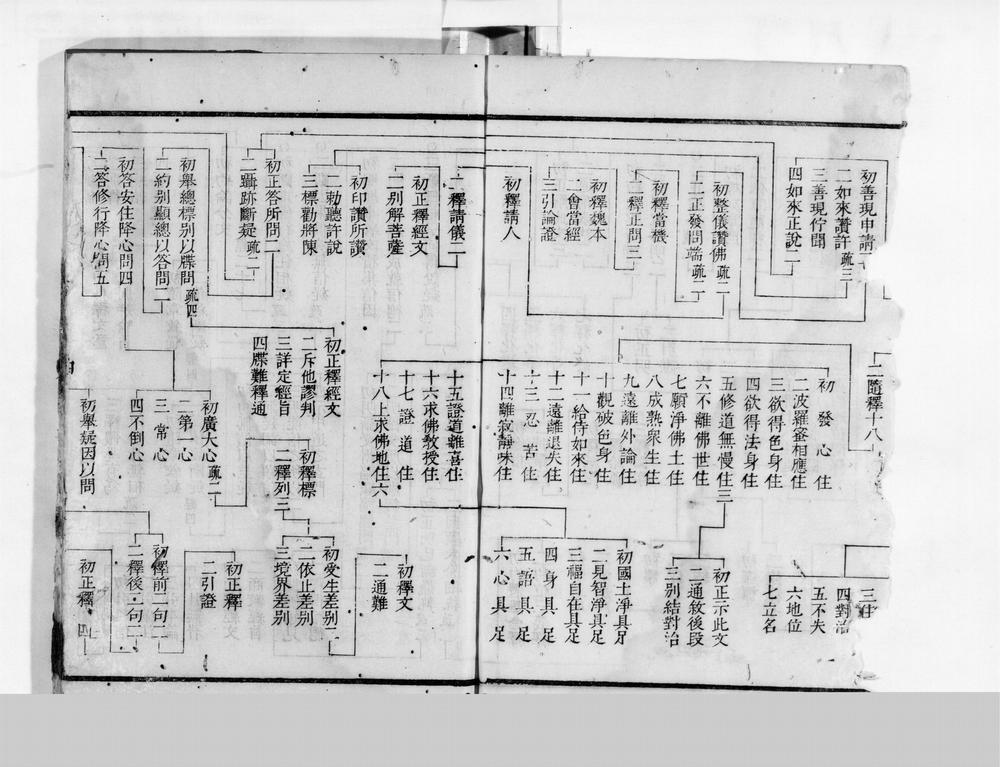 初善現申請二
二如來讚許疏三
三善現佇聞
四如來正說二
初整儀讚佛疏二
二正發問端疏二
初釋當機
二釋正問三
初釋魏本
二會當經
三引論證
初釋請人
二釋請儀二
初正釋經文
二別解菩薩
初印讚所讚
二勅聽許說
三標勸將陳
初正答所問二
二躡跡斷疑疏二
初舉總標別以牒問疏四
二約別顯總以答問二
初答安住降心問四
二答修行降心問五
二隨釋十八
初發心住
二波羅蜜相應住
三欲得色身住
四欲得法身住
五修道無慢住三
六不離佛世住
七願淨佛土住
八成熟衆生住
九遠離外論住
十觀破色身住
十一給侍如來住
十二遠離退失住
十三忍苦住
十四離寂靜味住
十五證道離喜住
十六求佛教授住
十七證道住
十八上求佛地住六
初正釋經文
二斥他謬判
三詳定經旨
四牒難釋通
初廣大心疏二
二第一心
三常心
四不倒心
初舉疑因以問
初釋標
二釋列三
四對治
五不失
六地位
七立名
初正示此文
二通敘後段
三別結對治
初國土淨具足
二見智淨具足
三福自在具足
四身具足
五語具足
六心具足
初釋文
二通難
初受生差別二
二依止差別
三境界差別
初正釋
二引證
初釋前二句二
二釋後二句二
初正釋四